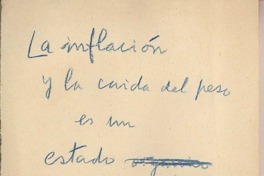 La inflación
y la caida del peso
es un
estado